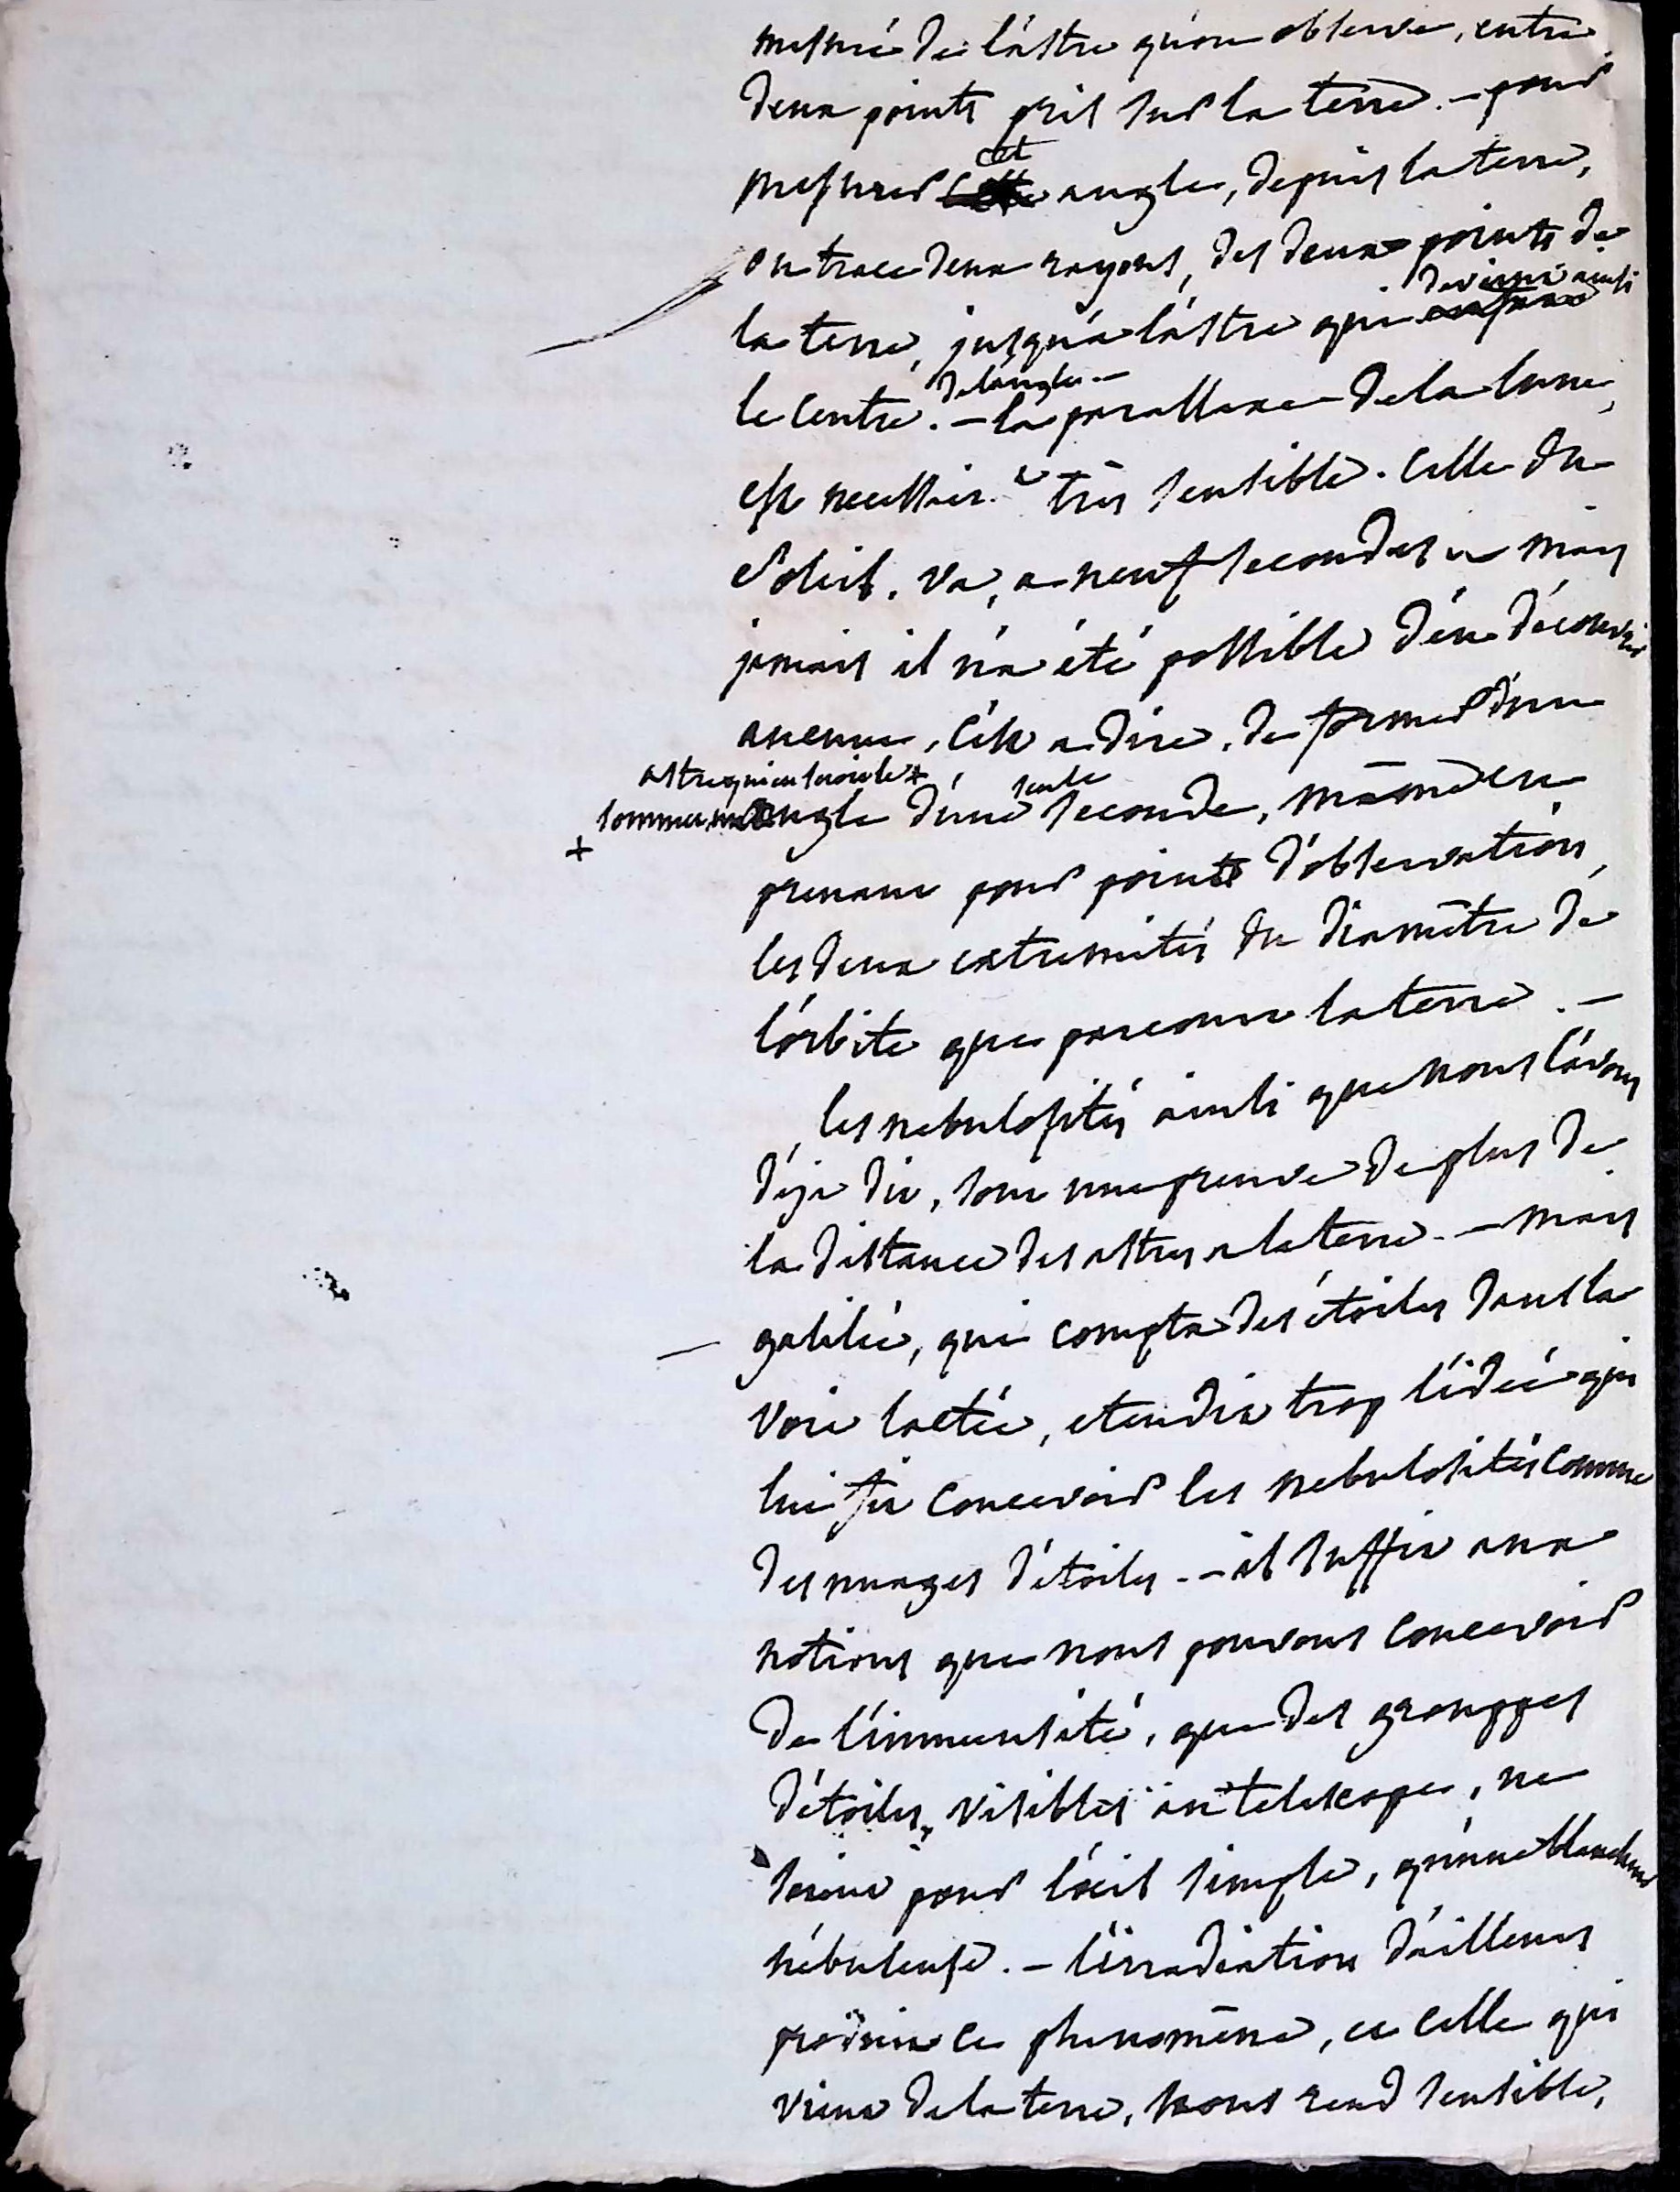 mesuré de l'astre qu'on observe, entre
deux points pris sur la terre. – pour
cet
mesurer cette angle, depuis la terre,
on trace deux rayons, des deux points de
devient ainsi
la terre, jusqu'à l'astre qui
de l'angle. –
le centre. – la parallaxe de la lune,
est necessair.t très sensible. celle du
Soleil. va, a neuf secondes – mais
jamais il n'a été possible d'en découvrir
aucune, c'est a dire, de former d'une
astre qui en seroit le +
seule
sommet, un angle d'une seconde, même en
+
prenant pour points d'observation,
les deux extremités du diamêtre de
l'orbite que parcourt la terre. –
les nebulosités ainsi que nous l'avons
déja dit, sont une preuve de plus de
la distance des astres a la terre. – mais
galilée, qui compta des étoiles dans la
voie lactée, etendit trop l'idée qui
lui fit concevoir les nebulosités comme
des nuages d'étoiles. – il suffit aux
notions que nous pouvons concevoir
de l'immensité, que des grouppes
d'étoiles, visibles au teleskope, ne
soient pour l'œil simple, qu'une blancheur
nébuleuse. – l'irradiation d'ailleurs
produit ce phenomêne, et celle qui
vient de la terre, nous rend sensible,